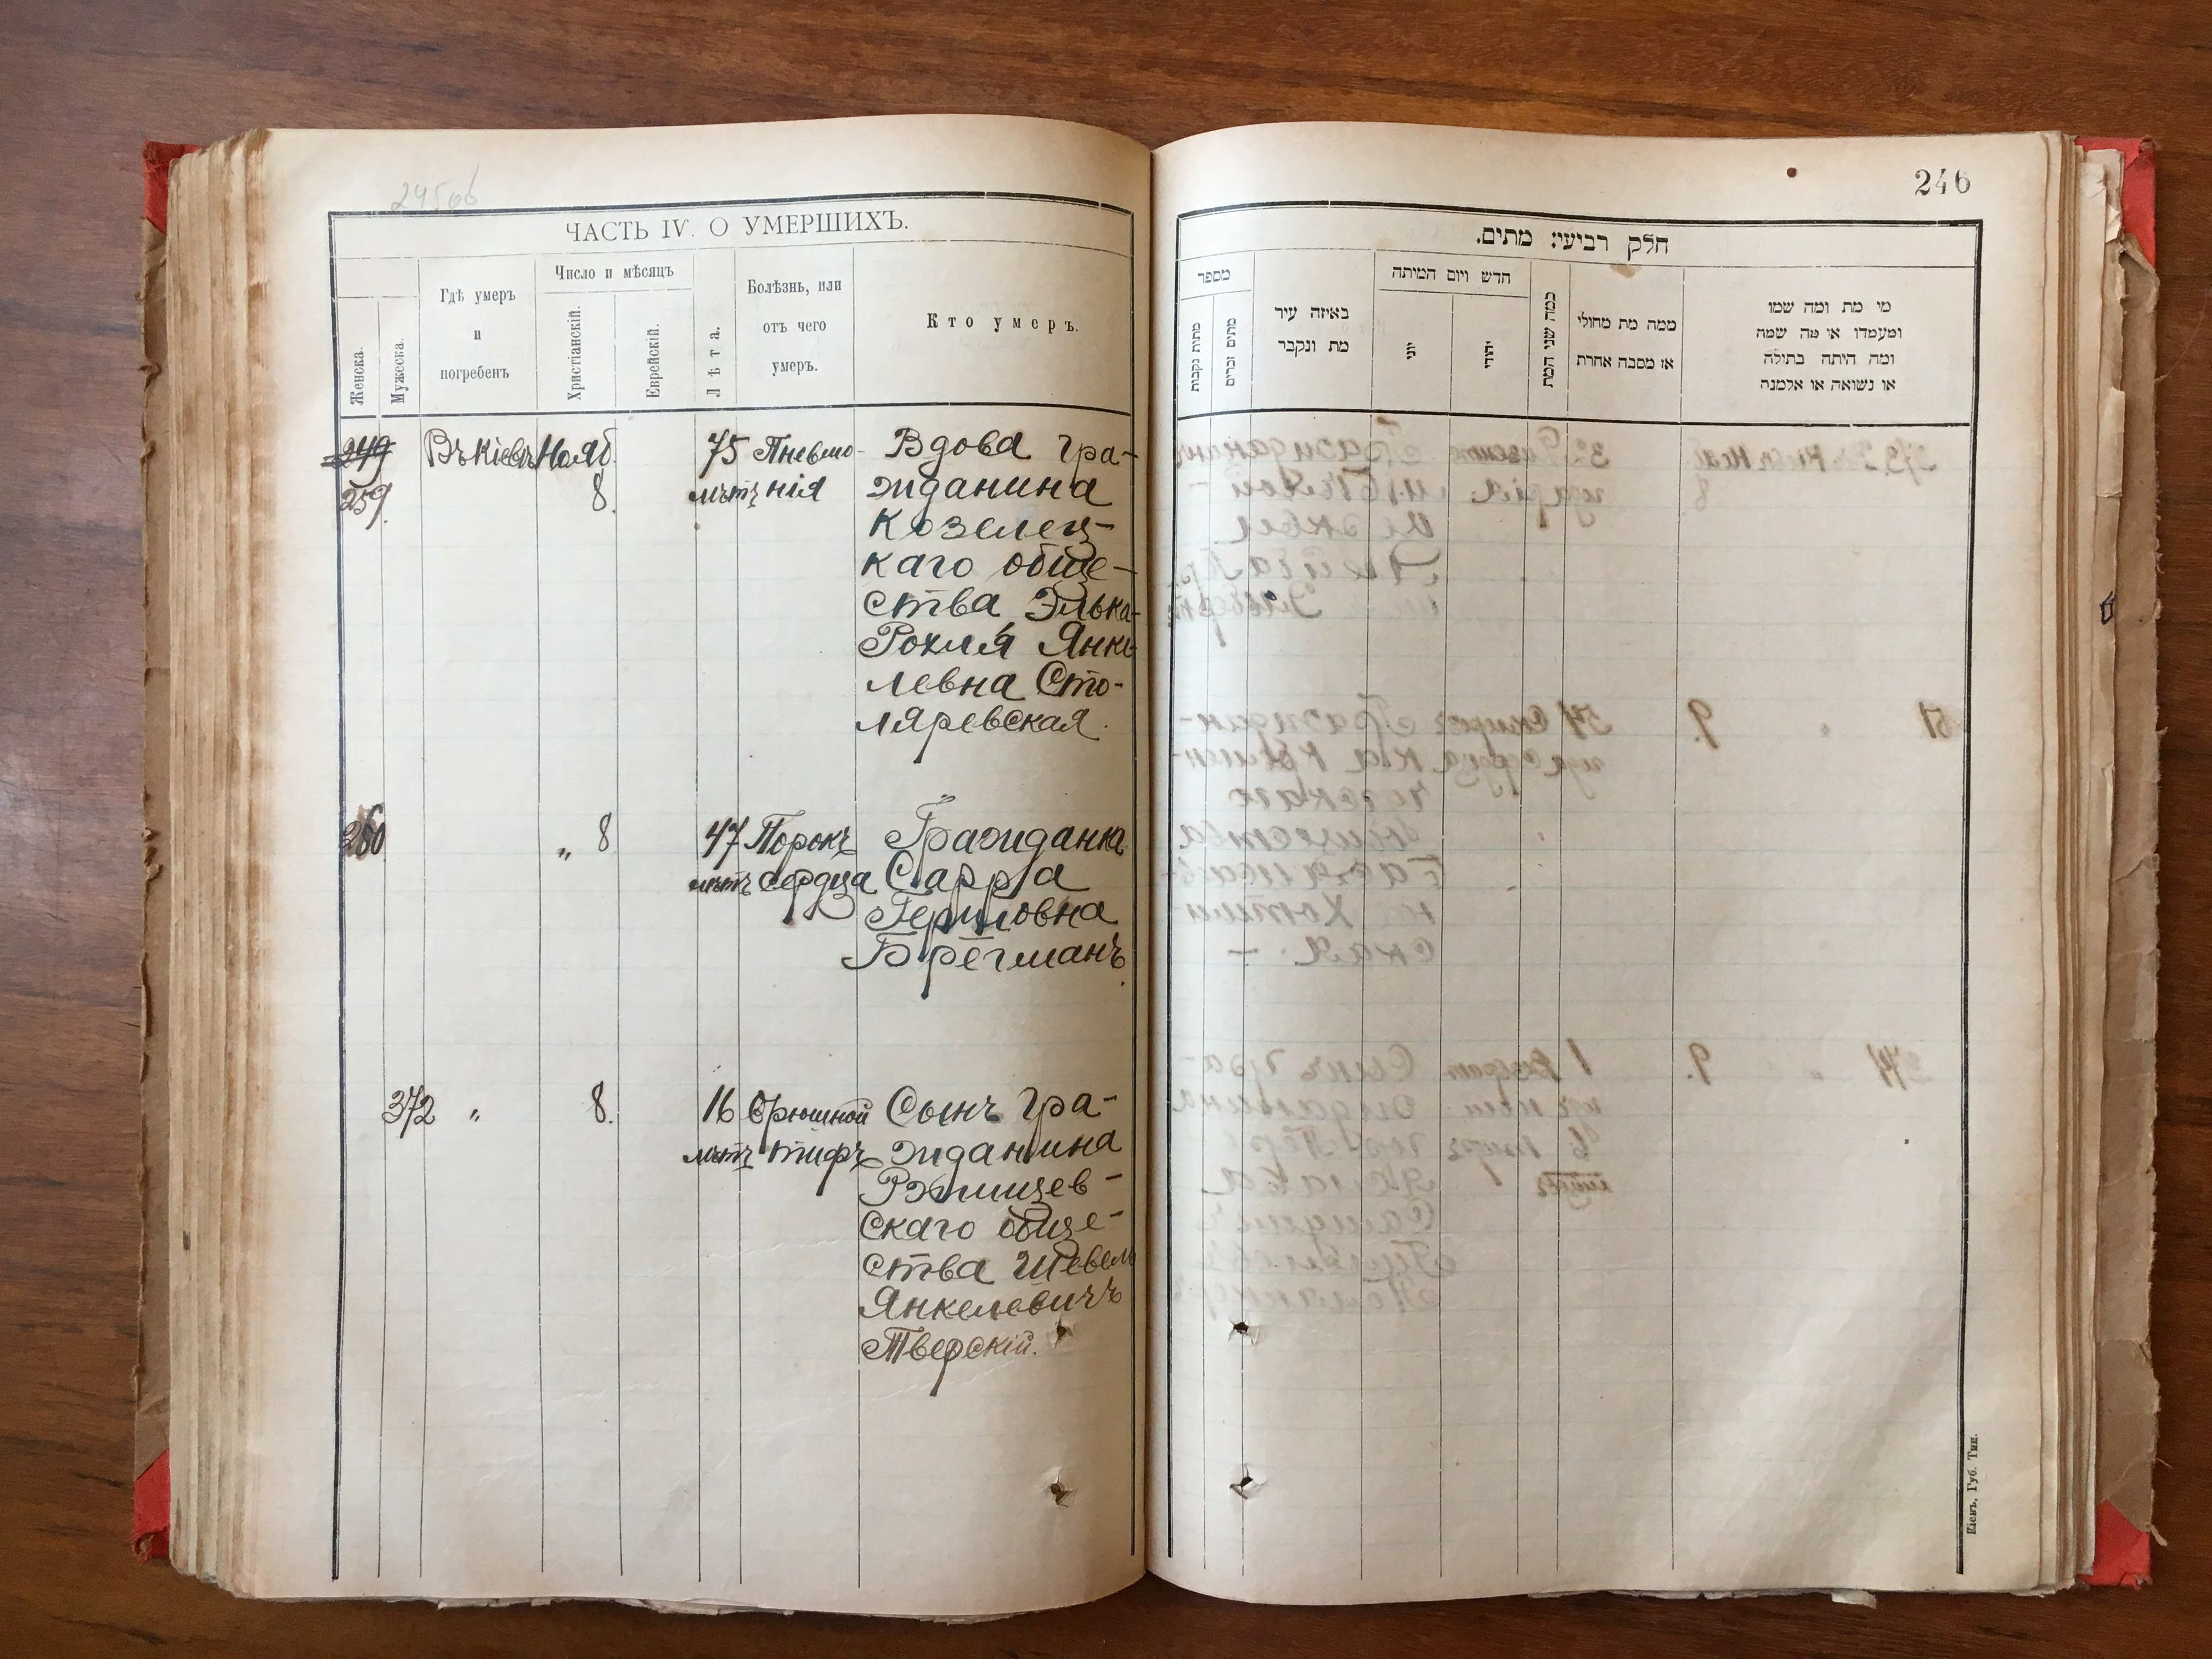 245об
ЧАСТЬ IV. О УМЕРШИХЪ.
Женска.
Мужеска.
Гдѣ умеръ
и
погребенъ
Число и мѣсяцъ
Христіанскій.
Еврейскій.
Лѣта.
Болѣзнь, или
отъ чего
умеръ.
Кто умеръ.
249
259.
Въ Кіевѣ
Нояб.
8.
75
лѣтъ
Пневмо-
нія
Вдова гра-
жданина
Козелец-
каго обще-
ства Элька-
Рохля Янке-
левна Сто-
ляревская.
260
„ 8
47
лѣтъ
Порокъ
сердца
Гражданка
Сарра
Гершовна
Брегманъ.
372
„
8.
16
лѣтъ
Брюшной
тифъ
Сынъ гра-
жданина
Ржищев-
скаго обще-
ства Шевель
Янкелевичъ
Тверскій.
246
חלק רביעי: מתים.
מספר
מתות נקבות
מתים זכרים
באיזה עיר
מת ונקבר
חדש ויום המיתה
יוני
יהודי
כמה שני המת
ממה מת מחולי
או מסבה אחרת
מי מת ומה שמו
ומעמדו או מה שמה
ומה היתה בתילה
או נשואה או אלמנה
Кіевъ, Губ. Тип.